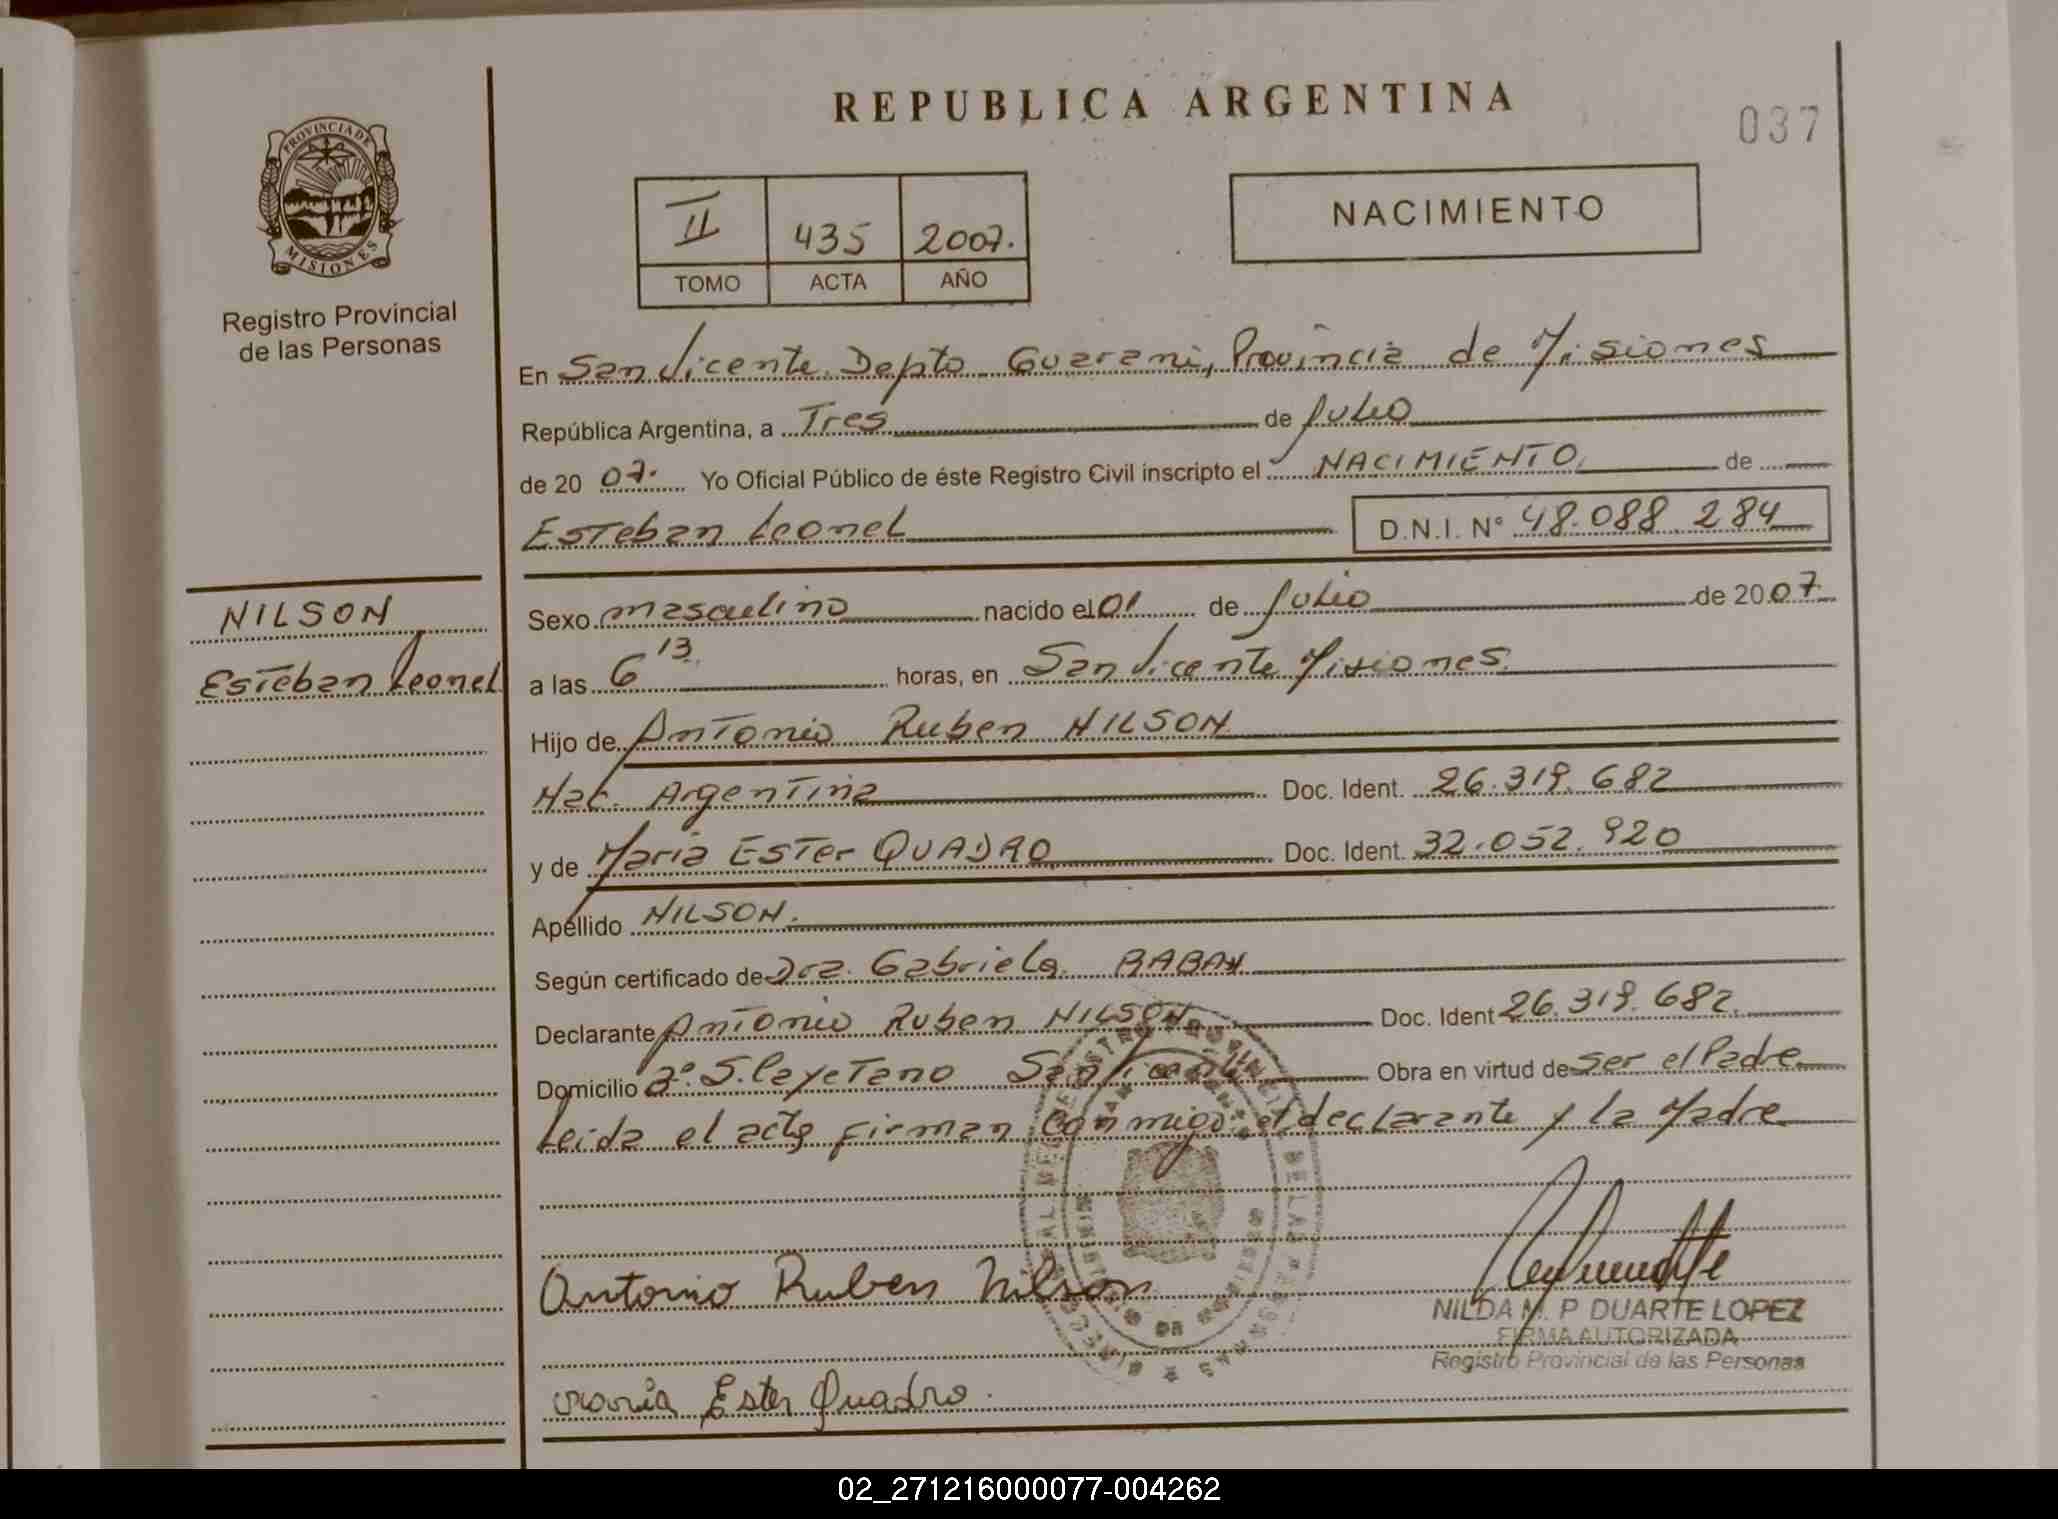 REPUBLICA ARGENTINA
037
PROVINCIA DE
MISIONES
Registro Provincial
de las Personas
II 435 2007.
TOMO ACTA AÑO
NACIMIENTO
En San Vicente Depto Guarani, Provincia de Misiones
República Argentina, a Tres de Julio
de 20 07. Yo Oficial Público de éste Registro Civil inscripto el NACIMIENTO, de
Esteban Leonel D.N.I. N° 48.088.284
NILSON
Esteban Leonel
Sexo masculino nacido el 01 de Julio de 20 07
a las 6 13 horas, en San Vicente Misiones
Hijo de Antonio Ruben NILSON
Nac. Argentina Doc. Ident. 26.319.682
y de Maria Ester QUADRO Doc. Ident. 32.052.920
Apellido NILSON.
Según certificado de Dra. Gabriela
Declarante Antonio Ruben NILSON Doc. Ident 26.319.682.
Domicilio Bº. S. Cayetano San Vicente Obra en virtud de ser el Padre
Leida el acta firman conmigo el declarante y la Madre
Antonio Ruben Nilson
NILDA M. P DUARTE LOPEZ
FIRMA AUTORIZADA
Registro Provincial de las Personas
Maria Ester Quadro.
02_271216000077-004262